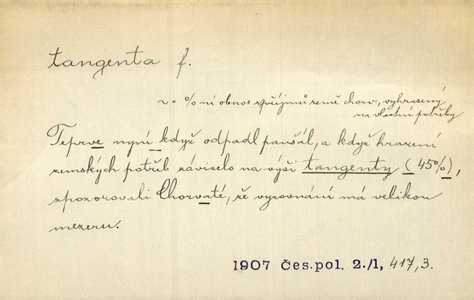 tangenta f.
~ = %ní obnos příjmů země chorv., vyhrazený
na vlastní potřeby
Teprve nyní když odpadl paušál, a když hrazení
zemských potřeb záviselo na výši tangenty (45%),
zpozorovali Chorvaté, že vyrovnání má velikou
mezeru.
1907 Čes. pol. 2./1, 417,3.